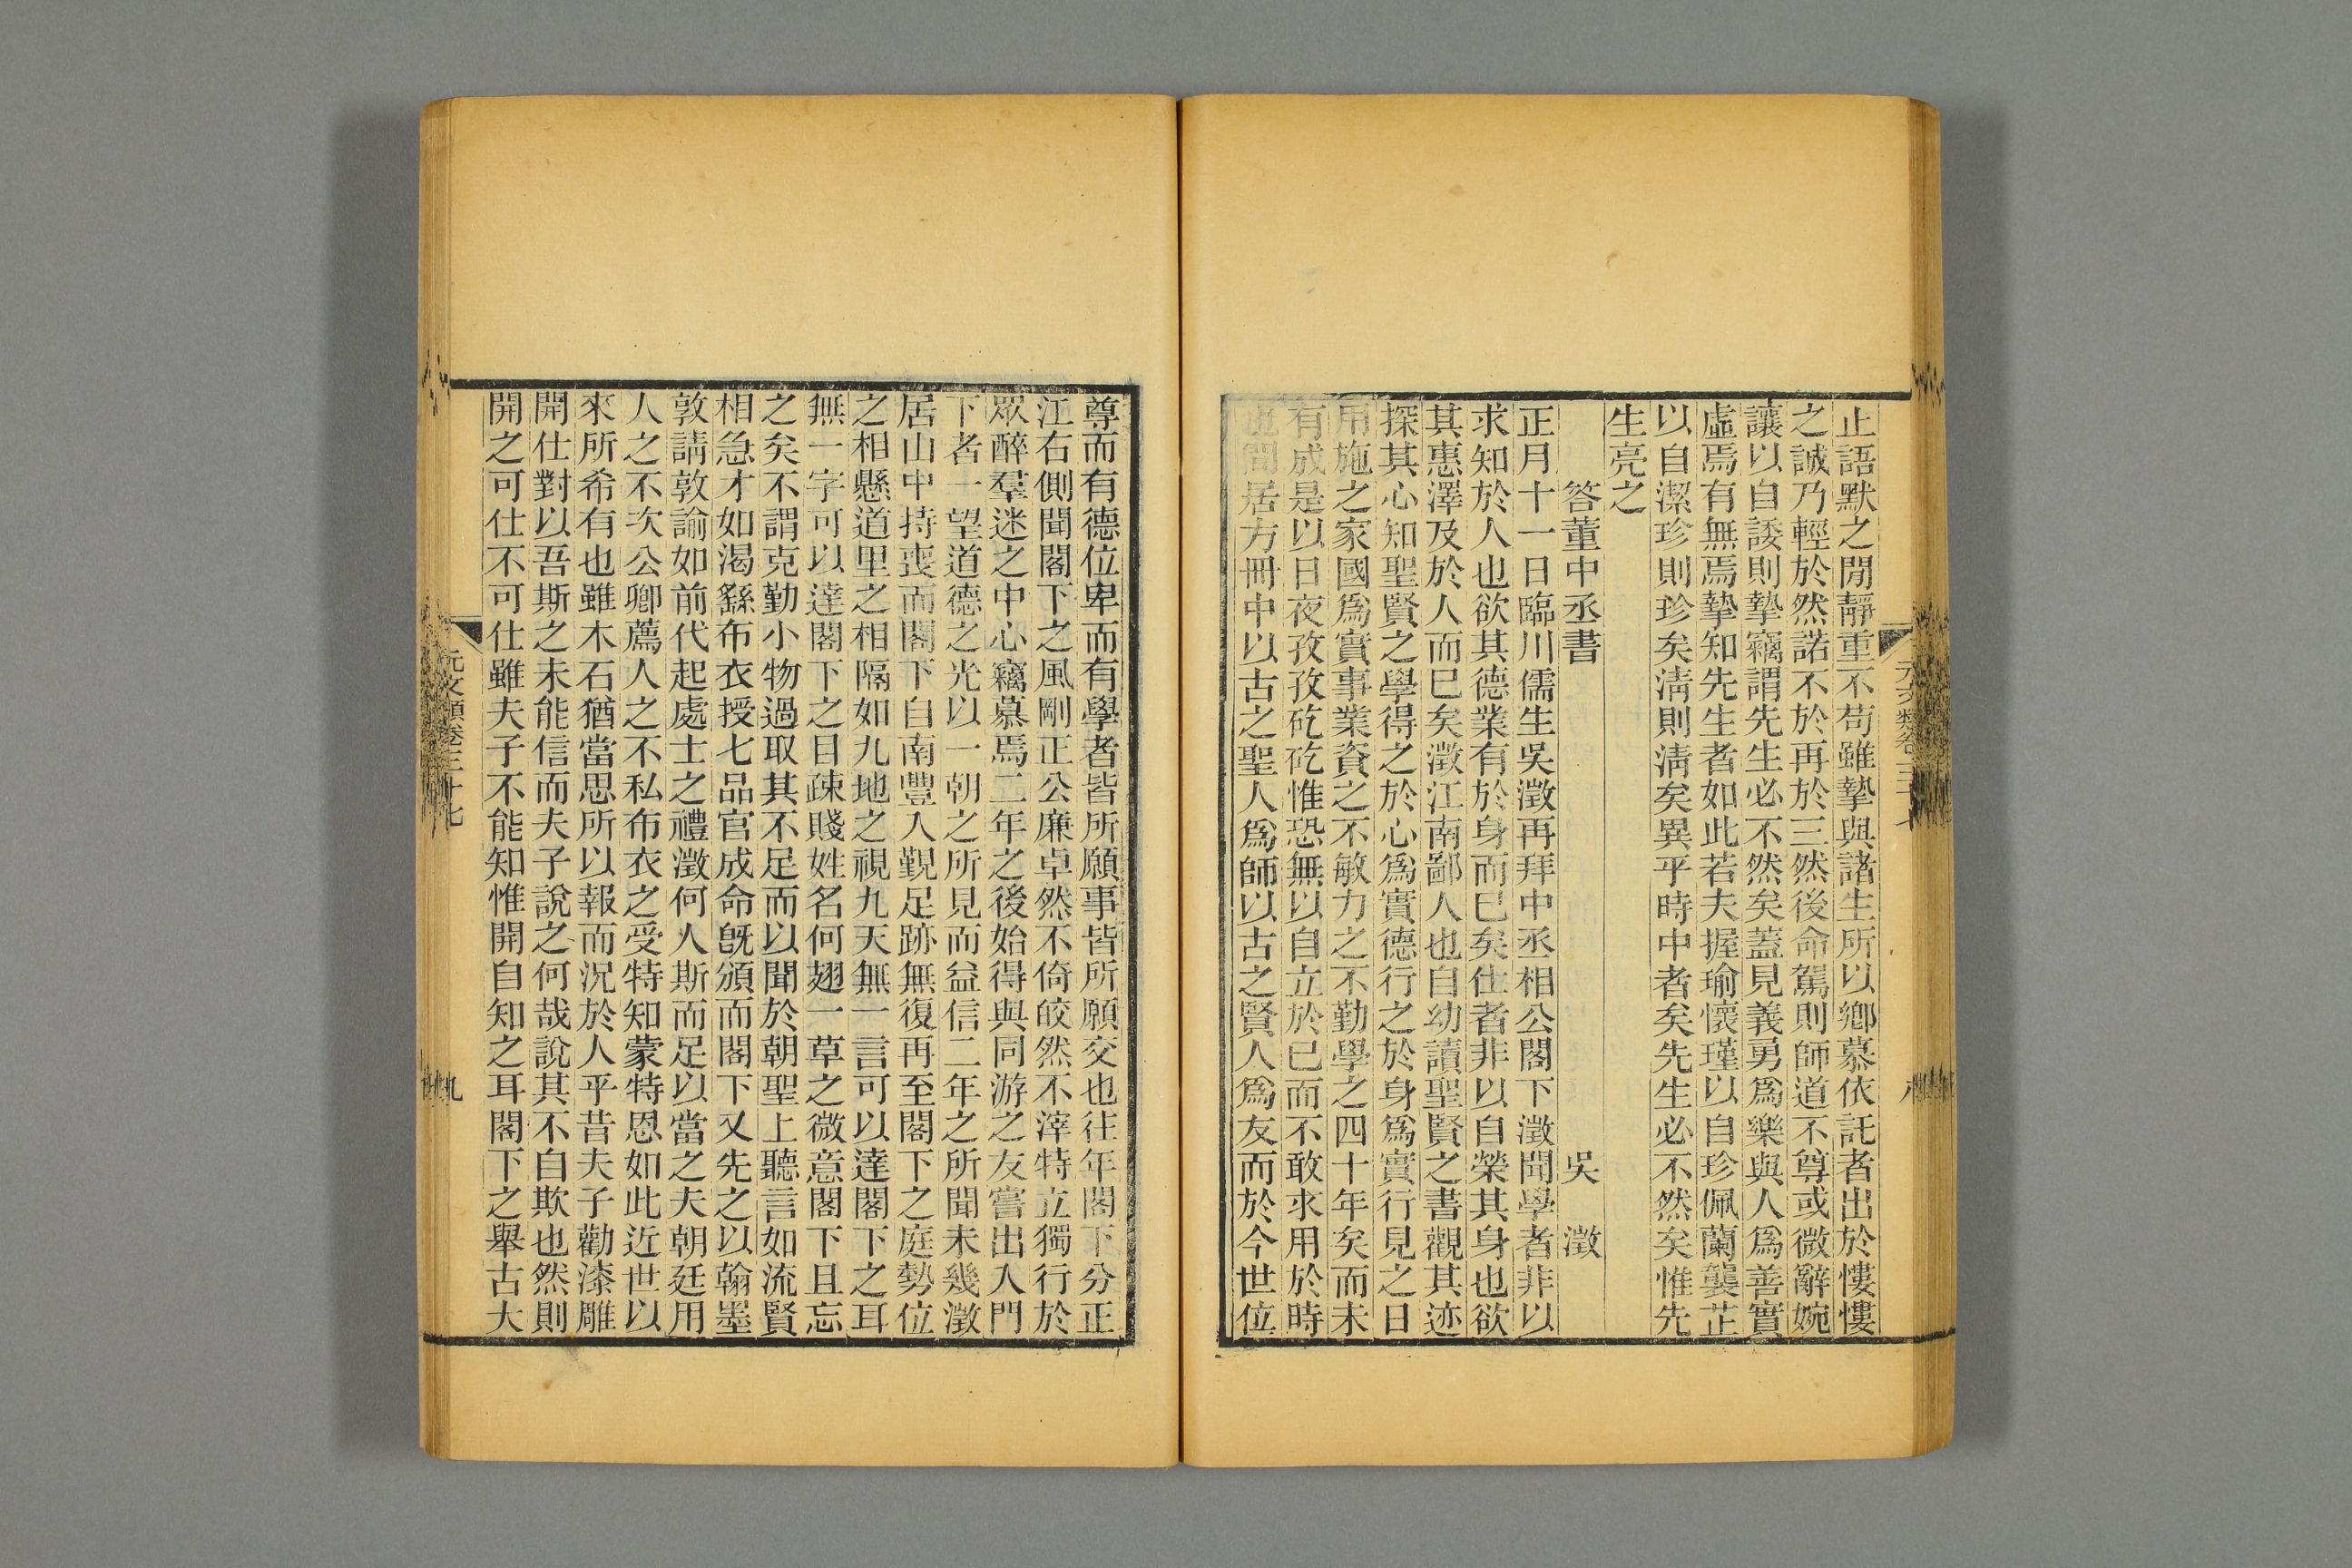 止語默之閒靜重不苟雖摯與諸生所以鄕慕依託者出於慺慺
之誠乃輕於然諾不於再於三然後命駕則師道不尊或微辭婉
讓以自諉則摯竊謂先生必不然矣蓋見義勇爲樂與人爲善實
虛焉有無焉摯知先生者如此若夫握瑜懷瑾以自珍佩蘭襲芷
以自潔珍則珍矣淸則淸矣異乎時中者矣先生必不然矣惟先
生亮之
答董中丞書 吳 澂
正月十一日臨川儒生吳澂再拜中丞相公閣下澂聞學者非以
求知於人也欲其德業有於身而已矣仕者非以自榮其身也欲
其惠澤及於人而已矣澂江南鄙人也自幼讀聖賢之書觀其迹
探其心知聖賢之學得之於心爲實德行之於身爲實行見之日
用施之家國爲實事業資之不敏力之不勤學之四十年矣而未
有成是以日夜孜孜矻矻惟恐無以自立於已而不敢求用於時
也閒居方冊中以古之聖人爲師以古之賢人爲友而於今世位
元文類卷三十七
八
尊而有德位卑而有學者皆所願事皆所願交也往年閣下分正
江右側聞閣下之風剛正公廉卓然不倚皎然不滓特立獨行於
眾醉羣迷之中心竊慕焉二年之後始得與同游之友嘗出入門
下者一望道德之光以一朝之所見而益信二年之所聞未幾澂
居山中持喪而閣下自南豐入覲足跡無復再至閣下之庭勢位
之相懸道里之相隔如九地之視九天無一言可以達閣下之耳
無一字可以達閣下之目疎賤姓名何翅一草之微意閣下且忘
之矣不謂克勤小物過取其不足而以聞於朝聖上聽言如流賢
相急才如渴繇布衣授七品官成命旣頒而閣下又先之以翰墨
敦請敦諭如前代起處士之禮澂何人斯而足以當之夫朝廷用
人之不次公卿薦人之不私布衣之受特知蒙特恩如此近世以
來所希有也雖木石猶當思所以報而況於人乎昔夫子勸漆雕
開仕對以吾斯之未能信而夫子說之何哉說其不自欺也然則
開之可仕不可仕雖夫子不能知惟開自知之耳閣下之舉古大
元文類卷三十七
九